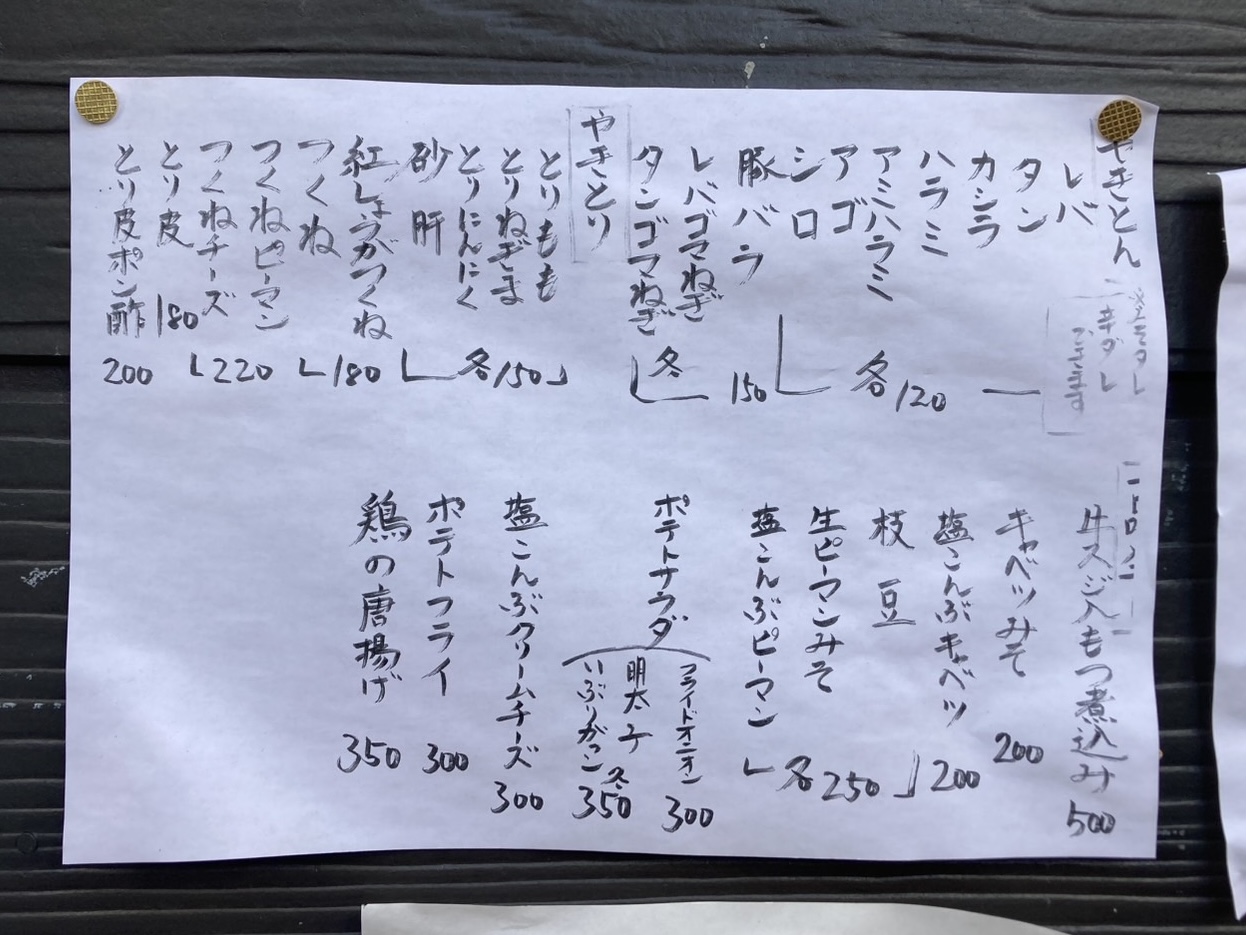 やきとん
※ミソタレ
辛ダレ
ございます
レバ
タン
カシラ
ハラミ
アミハラミ
アゴ
シロ
各120
豚バラ
150
レバゴマねぎ
タンゴマねぎ
各
やきとり
とりもも
とりねぎま
とりにんにく
砂肝
各150
紅しょうがつくね
つくね
180
つくねピーマン
つくねチーズ
220
とり皮
180
とり皮ポン酢
200
牛スジ入もつ煮込み
500
キャベツみそ
200
塩こんぶキャベツ
200
枝豆
生ピーマンみそ
塩こんぶピーマン
各250
ポテトサラダ
フライドオニオン
300
明太子
いぶりがっこ
各350
塩こんぶクリームチーズ
300
ポテトフライ
300
鶏の唐揚げ
350